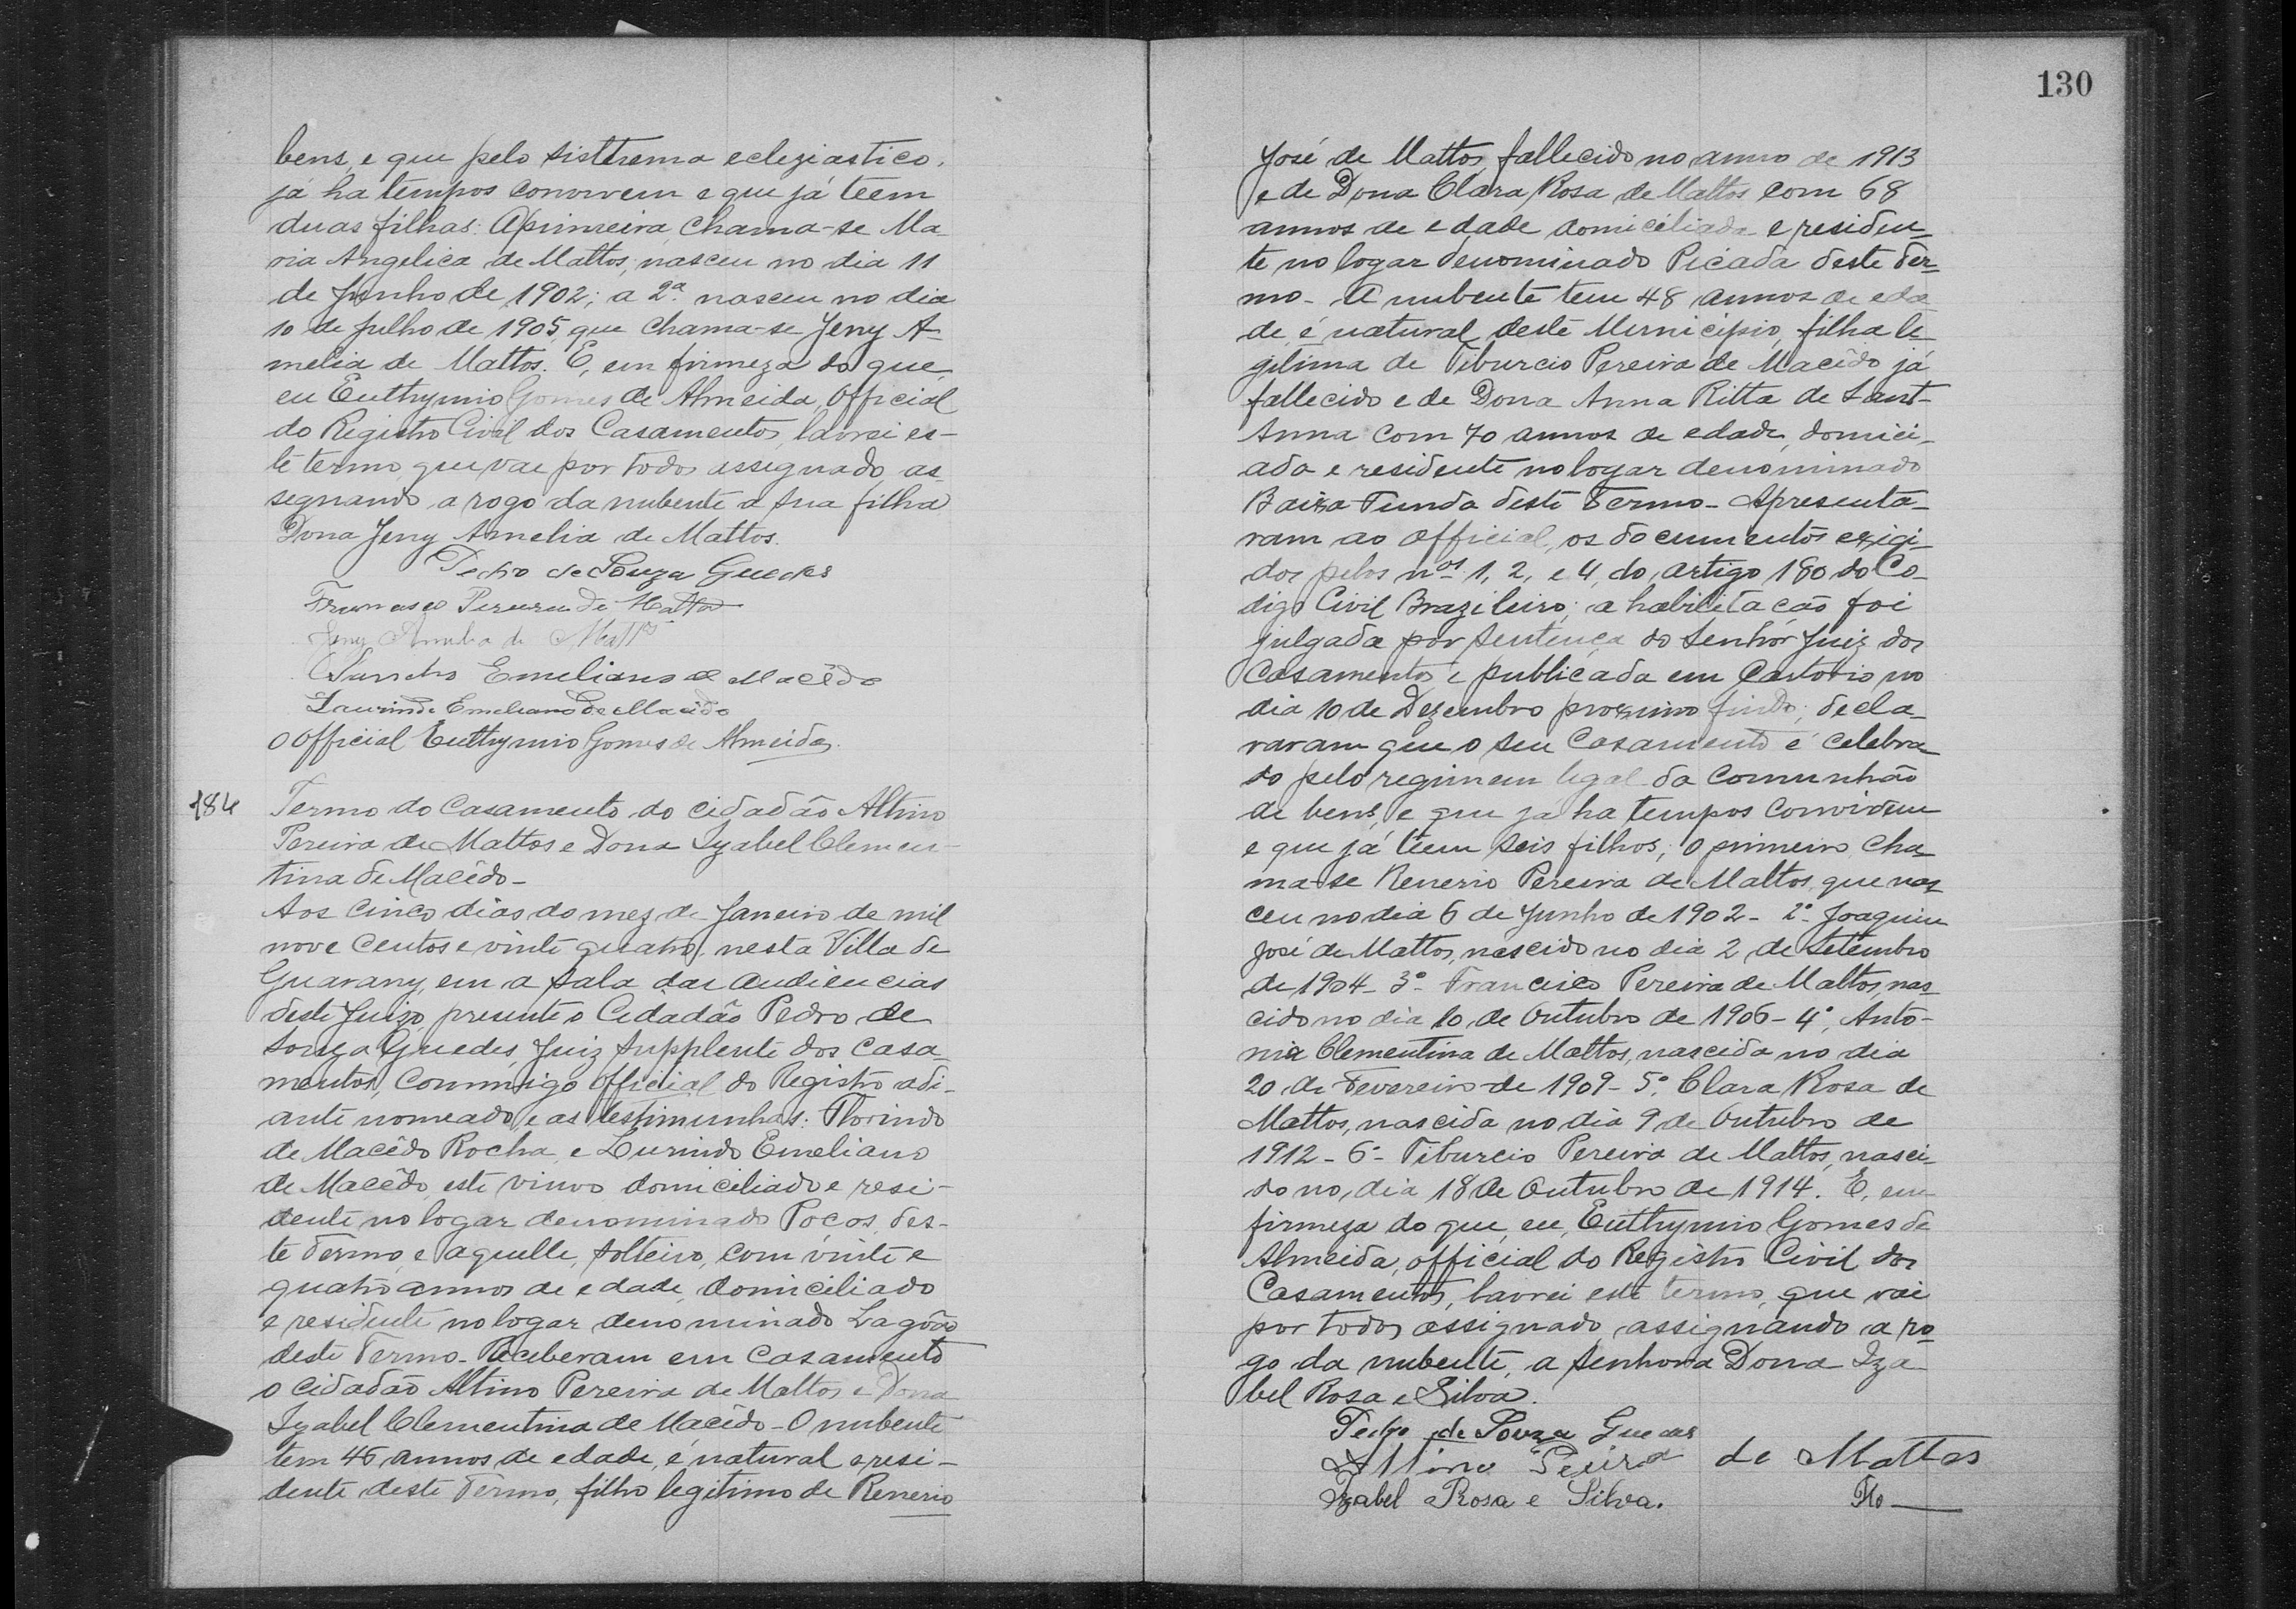 bens, e que pelo sisthema ecleziastico,
já ha tempos convivem e que já teem
duas filhas: A primeira, chama-se Ma-
ria Angelica de Mattos, nasceu no dia 11
de Junho de 1902; a 2ª nasceu no dia
10 de Julho de 1905, que chama-se Jeny A-
melia de Mattos. E, em firmeza do que,
eu Euthymio Gomes de Almeida, Official
do Registro Civil dos Casamentos, lavrei es-
te termo, que vae por todos assignado, as-
segnando a rogo da nubente a sua filha
Dona Jeny Amelia de Mattos.
Pedro de Souza Guedes
Francisco Pereira de Mattos
Jeny Amelia de Mattos
Emeliano de Macêdo
Laurindo Emeliano de Macêdo
O Official Euthymio Gomes de Almeida.
184
Termo do Casamento do cidadão Altino
Pereira de Mattos e Dona Izabel Clemen-
tina de Macêdo-
Aos cinco dias do mez de Janeiro de mil
nove centos e vinte quatro, nesta Villa de
Guarany, em a sala das audiencias
deste Juizo, presente o Cidadão Pedro de
Souza Guedes, Juiz Supplente dos Casa-
mentos, Commigo official do Registro adi-
ante nomeado, e as testimunhas: Florindo
de Macêdo Rocha, e Lurindo Emeliano
de Macêdo, este viuvo domiciliado e resi-
dente no logar denominado Poços, des-
te Termo, e aquelle, solteiro, com vinte e
quatro annos de edade, domiciliado
e residente no logar denominado Lagôão
deste Termo- Receberam em Casamento
o cidadão Altino Pereira de Mattos e Dona
Izabel Clementina de Macêdo- O nubente
tem 46 annos de edade, é natural e resi-
dente deste Termo, filho legitimo de Renerio
130
José de Mattos, fallecido no anno de 1913
e de Dona Clara Rosa de Mattos com 68
annos de edade domiciliada e residen-
te no logar denominado Picada deste Ter-
mo- A nubente tem 48 annos de eda
de, é natural deste Municipio, filha le-
gitima de Tiburcio Pereira de Macêdo já
fallecido e de Dona Anna Ritta de Sant-
Anna com 70 annos de edade, domici-
ada e residente no logar denominado
Baixa Funda deste Termo- Apresenta-
ram ao official, os documentos exigi-
dos pelos nos 1, 2, e 4, do artigo 180 do Co-
digo Civil Brazileiro; a habilitação foi
julgada por sentença do Senhor Juiz dos
Casamentos e publicada em Cartorio no
dia 10 de Dezembro proximo findo; decla-
raram que o seu Casamento é celebra-
do pelo regimem legal da Comunhão
de bens, e que ja ha tempos convivem
e que já teem seis filhos; o primeiro, cha-
ma-se Renerio Pereira de Mattos, que nas-
ceu no dia 6 de Junho de 1902- 2º- Joaquim
José de Mattos, nascido no dia 2 de Setembro
de 1904- 3º- Francisco Pereira de Mattos, nas-
cido no dia 10 de Outubro de 1906- 4º, Anto-
nia Clementina de Mattos, nascida no dia
20 de Fevereiro de 1909- 5º. Clara Rosa de
Mattos, nascida no dia 9 de Outubro de
1912- 6º- Tiburcio Pereira de Mattos, nasci-
do no dia 18 de Outubro de 1914. E, em
firmeza do que, eu, Euthymio Gomes de
Almeida, official do Registro Civil dos
Casamentos, lavrei este termo, que vai
por todos assignado, assignando a ro-
go da nubente, a senhora Dona Iza-
bel Rosa e Silva.
Pedro de Souza Guedes
Altino Peiira de Mattos
Izabel Rosa e Silva. Flo